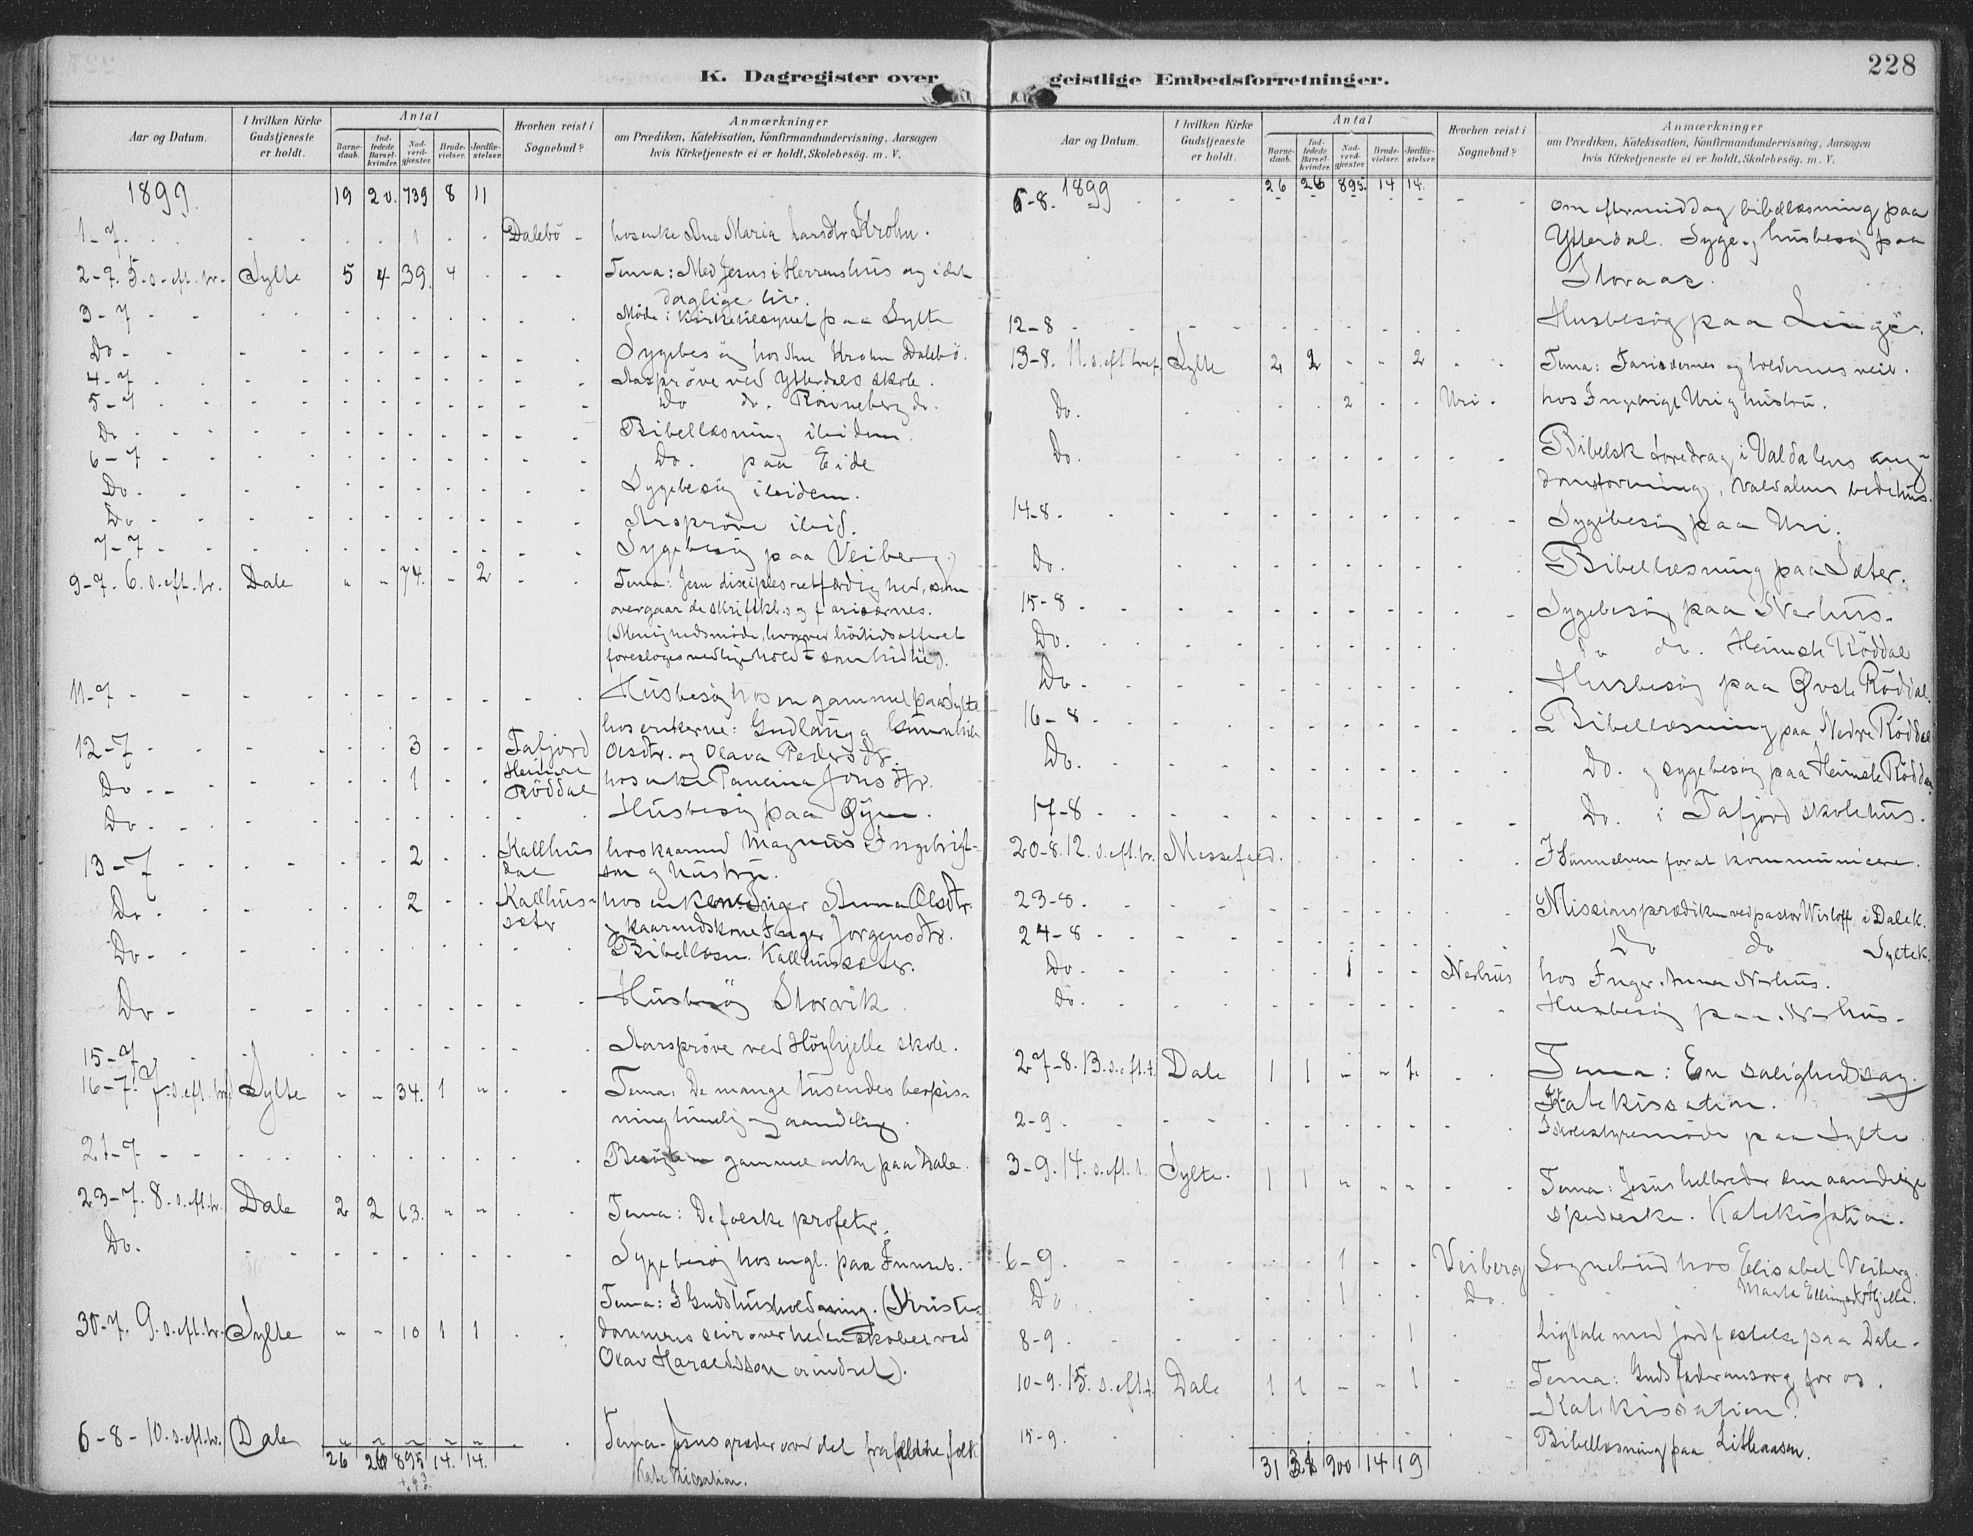 228
K. Dagregister over geistlige Embedsforretninger.
Aar og Datum.
I hvilken Kirke Gudstjeneste er holdt.
Antal
Barnedaab.
Indledede Barselkvinder.
Nadverdgjester.
Brudevielser.
Jordfæstelser.
Hvorhen reist i Sognebud?
Anmærkninger
om Prædiken, Katekisation, Konfirmandundervisning, Aarsagen
hvis Kirketjeneste ei er holdt, Skolebesög. m. V.
1899. 19 20. 739 8 11
1-7. 1 Dalebö hos enke Ane Maria Larsdtr Krohn.
2-7. 5. s. eft. tr. Sylte 5 4 39. 4 Tema: Med Jesus i Herrens hus og i det
daglige liv.
3-7 Möde i Kirketilsynet paa Sylte
Do Sygebesög hos Ane Krohn Dalebö.
4-7 Aarspröve ved Ytterdals skole.
5-7 Do do. Rönneberg do.
Do Bibellæsning ibidem.
6-7 Do. paa Eide
Do. Sygebesög ibidem.
Do Aarspröve ibid.
7-7 Sygebesög paa Veiberg
9-7. 6. s. eft. tr. Dale " " 74. " 2 Tema: Jesu disciples retfærdighed, som
overgaar de skriftkl.s og farisæernes.
(Menighedsmöde, hvorver höitidsofferet
foresloges vedligeholdt som hidtil).
11-7 Husbesög hos en gammel paa Sylte
hos enkerne: Gudlaug Gunnhild
12-7 3 Tafjord Olsdtr. og Olava Pedersdtr.
Do 1 Heimre Röddal hos enke Paulina Jonsdtr.
Do Husbesög paa Öyen.
13-7 2 Kallhusdal hos kaarmd Magnus Ingebrigtson og hustru.
Do. 2 Kallhussæter hos enken Inger Anna Olsdtr.
kaarmdskone Inger Jörgensdtr.
Do Bibellæsn. Kallhussæter.
Do Husbesög Storvik.
15-7 Aarspröve ved Höyhjelle skole.
16-7. 7. s. eft. tr. Sylte " " 34. 1 " Tema: De mange tusendes bespisning timelig og aandelig.
21-7 Besögte en gammel enke paa Dale.
23-7. 8. s. eft. tr. Dale 2 2 63. " " Tema: De falske profeter.
Do. Sygebesög hos ungk. paa
30-7. 9. s. eft. tr. Sylte " " 10 1 1 Tema: I Guds husholdning. (Kristendommens seir over hedenskabet ved
Olav Haraldsson erindret).
6-8 - 10. s. eft. tr. Dale " " " " " Tema - Jesus græder over det frafaldne folk
Katekisation.
26 26 895 14. 14.
+ 63
K. Dagregister over geistlige Embedsforretninger.
Aar og Datum.
I hvilken Kirke Gudstjeneste er holdt.
Antal
Barnedaab.
Indledede Barselkvinder.
Nadverdgjester.
Brudevielser.
Jordfæstelser.
Hvorhen reist i Sognebud?
Anmærkninger
om Prædiken, Katekisation, Konfirmandundervisning, Aarsagen
hvis Kirketjeneste ei er holdt, Skolebesög. m. V.
6-8. 1899 26 26 895. 14 14.
om eftermiddag bibellæsning paa
Ytterdal. Syge og husbesög paa
Storaas.
12-8 Husbesög paa Linge.
13-8. 11. s. eft tref. Sylte 2 2 " " 2 Tema: Farisæernes og toldernes vei.
Do. 2 Uri hos Ingebrigt Uri og hustru.
Do. Bibelsk foredrag i Valdalens ungdomsforening, Valdalens bedehus.
14-8 Sygebesög paa Uri.
Do. Bibellæsning paa Sæter.
15-8 Sygebesög paa Nerhus.
Do. do. Heimste Röddal
Do. Husbesög paa Øvste Röddal
16-8 Bibellæsning paa Nedre Röddal
Do. Do. og sygebesög paa Heimste Röddal
17-8 Do. i Tafjord skolehus.
20-8. 12. s. eft. tr. Messefald. I Sunnelven for at kommunicere.
23-8. Missionsprædiken ved pastor Wisloff i Dale k.
24-8 Do do Sylte k.
Do. 1 Nerhus hos Inger Anna Nerhus.
Do. Husbesög paa Nerhus.
27-8. 13. s. eft. t. Dale 1 1 " " 1. Tema: En salighedssag.
Katekisation.
2-9. Skolestyremöde paa Sylte.
3-9. 14. s. eft. t. Sylte. 1 1 " " " Tema: Jesus helbreder den aandelige
spedalske. Katekisation.
6-9. 1 Veiberg Sognebud hos Elisabet Veiberg.
Do 1 Do. Marta Ellingsdtr Hjelle.
8-9. 1 Ligtale med jordfæstelse paa Dale.
10-9. 15. s. eft. t. Dale 1 1 " " 1 Tema: Guds faderomsorg for os.
Katekisation.
15-9. Bibellæsning paa
31 31 900 14 19